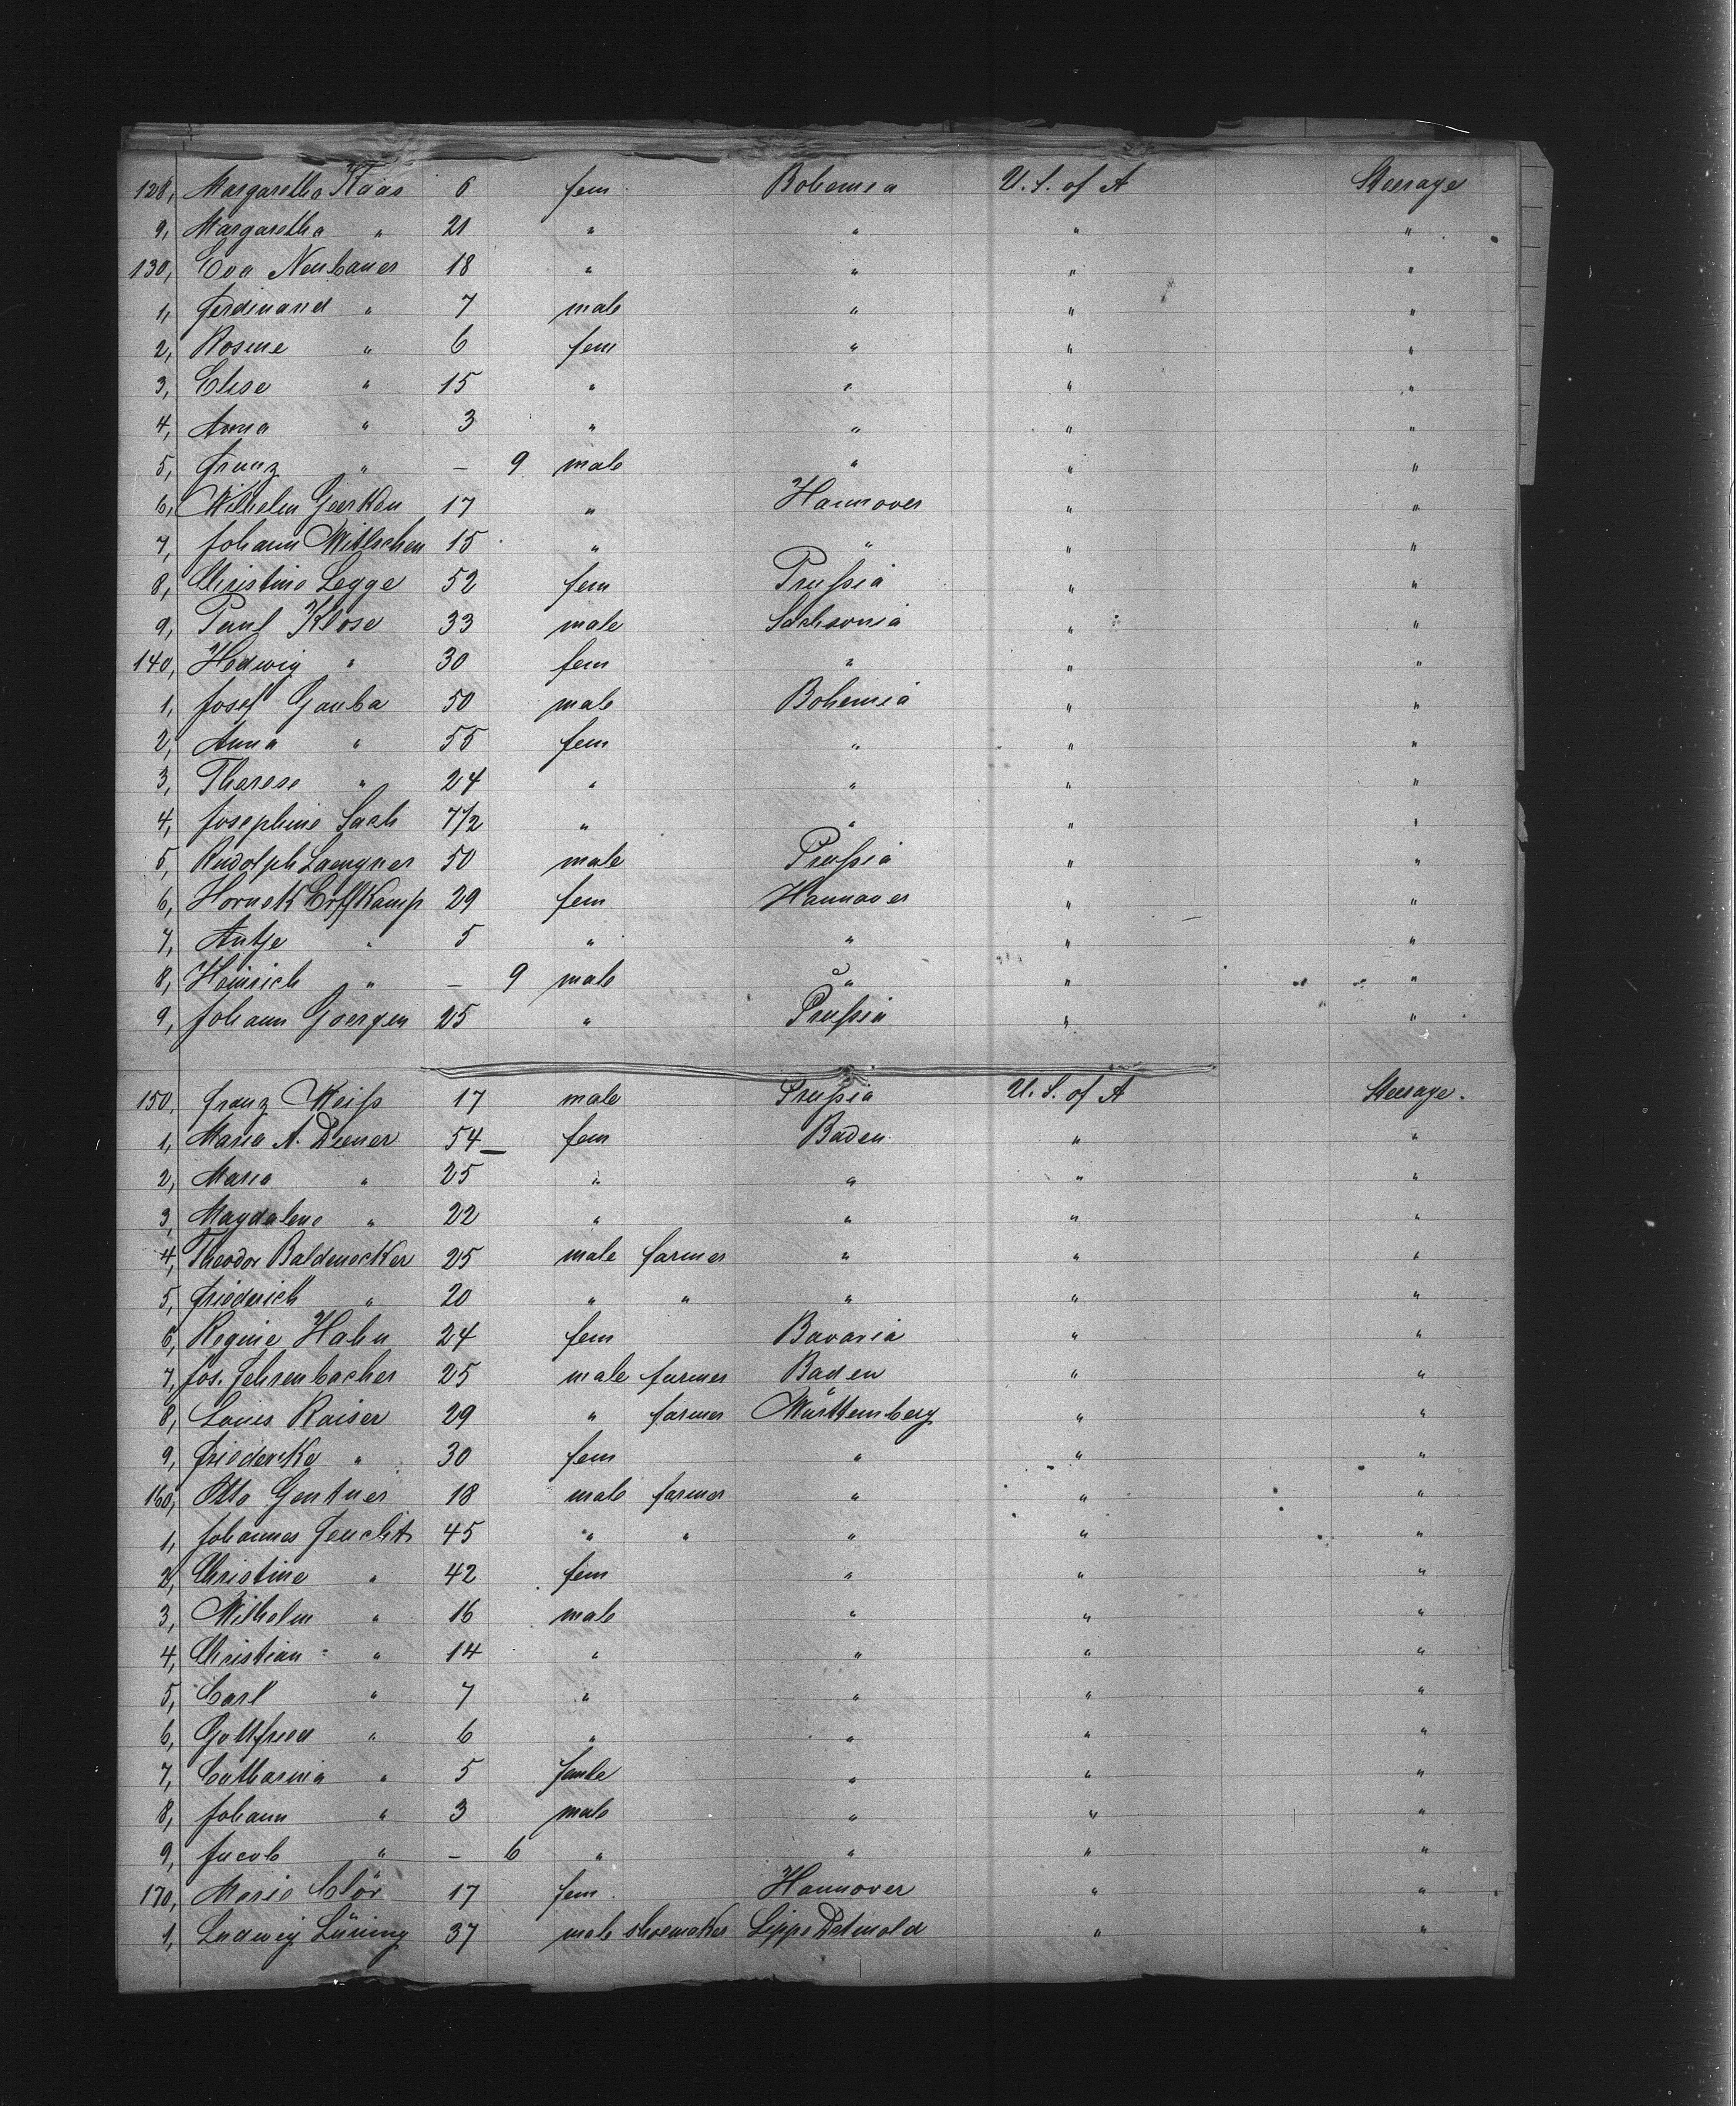 128, Margaretha Haas 6 fem. Bohemia U. S. of A Steerage
9, Margaretha " 21 " " " "
130, Eva Neubauer 18 " " " "
1, Ferdinand " 7 male " " "
2, Rosine " 6 fem " " "
3, Elise " 15 " " " "
4, Anna " 3 " " " "
5, Franz " – 9 male " " "
6, Wilhelm Geerken 17 " Hannover " "
7, Johann Wittschen 15 " " " "
8, Christine Legge 52 fem Prußia " "
9, Paul Klose 33 male Sachsonia " "
140, Hedwig " 30 fem " " "
1, Josef Gauba 50 male Bohemia " "
2, Anna " 55 fem " " "
3, Therese " 24 " " " "
4, Josephine 7/2 " " " "
5, Rudolph Laengner 50 male Prußia " "
6, Erffkamp 29 fem Hannover " "
7, Antje " 5 " " " "
8, Heinrich " – 9 male " " "
9, Johann Goergen 25 " Prußia " "
150, Franz Weiß 17 male Prußia U. S. of A Steerage.
1, Maria A. Diener 54 fem Baden " "
2, Maria " 25 " " " "
3, Magdalene " 22 " " " "
4, Theodor 25 male farmer " " "
5, Friederich " 20 " " " " "
6, Regine Hahn 24 fem Bavaria " "
7, Jos. Fehrenbacher 25 male farmer Baden " "
8, Louis Kaiser 29 " farmer Württemberg " "
9, Friedericke " 30 fem " " "
160, Otto Gentner 18 male farmer " " "
1, Johannes Feucht 45 " " " " "
2, Christine " 42 fem " " "
3, Wilhelm " 16 male " " "
4, Christian " 14 " " " "
5, Carl " 7 " " " "
6, Gottfried " 6 " " " "
7, Catharina " 5 " " "
8, Johann " 3 male " " "
9, Jacob " – 6 " " " "
170, Marie Clör 17 fem. Hannover " "
1, Ludwig Lüning 37 male shoemaker Lippe Detmold " "